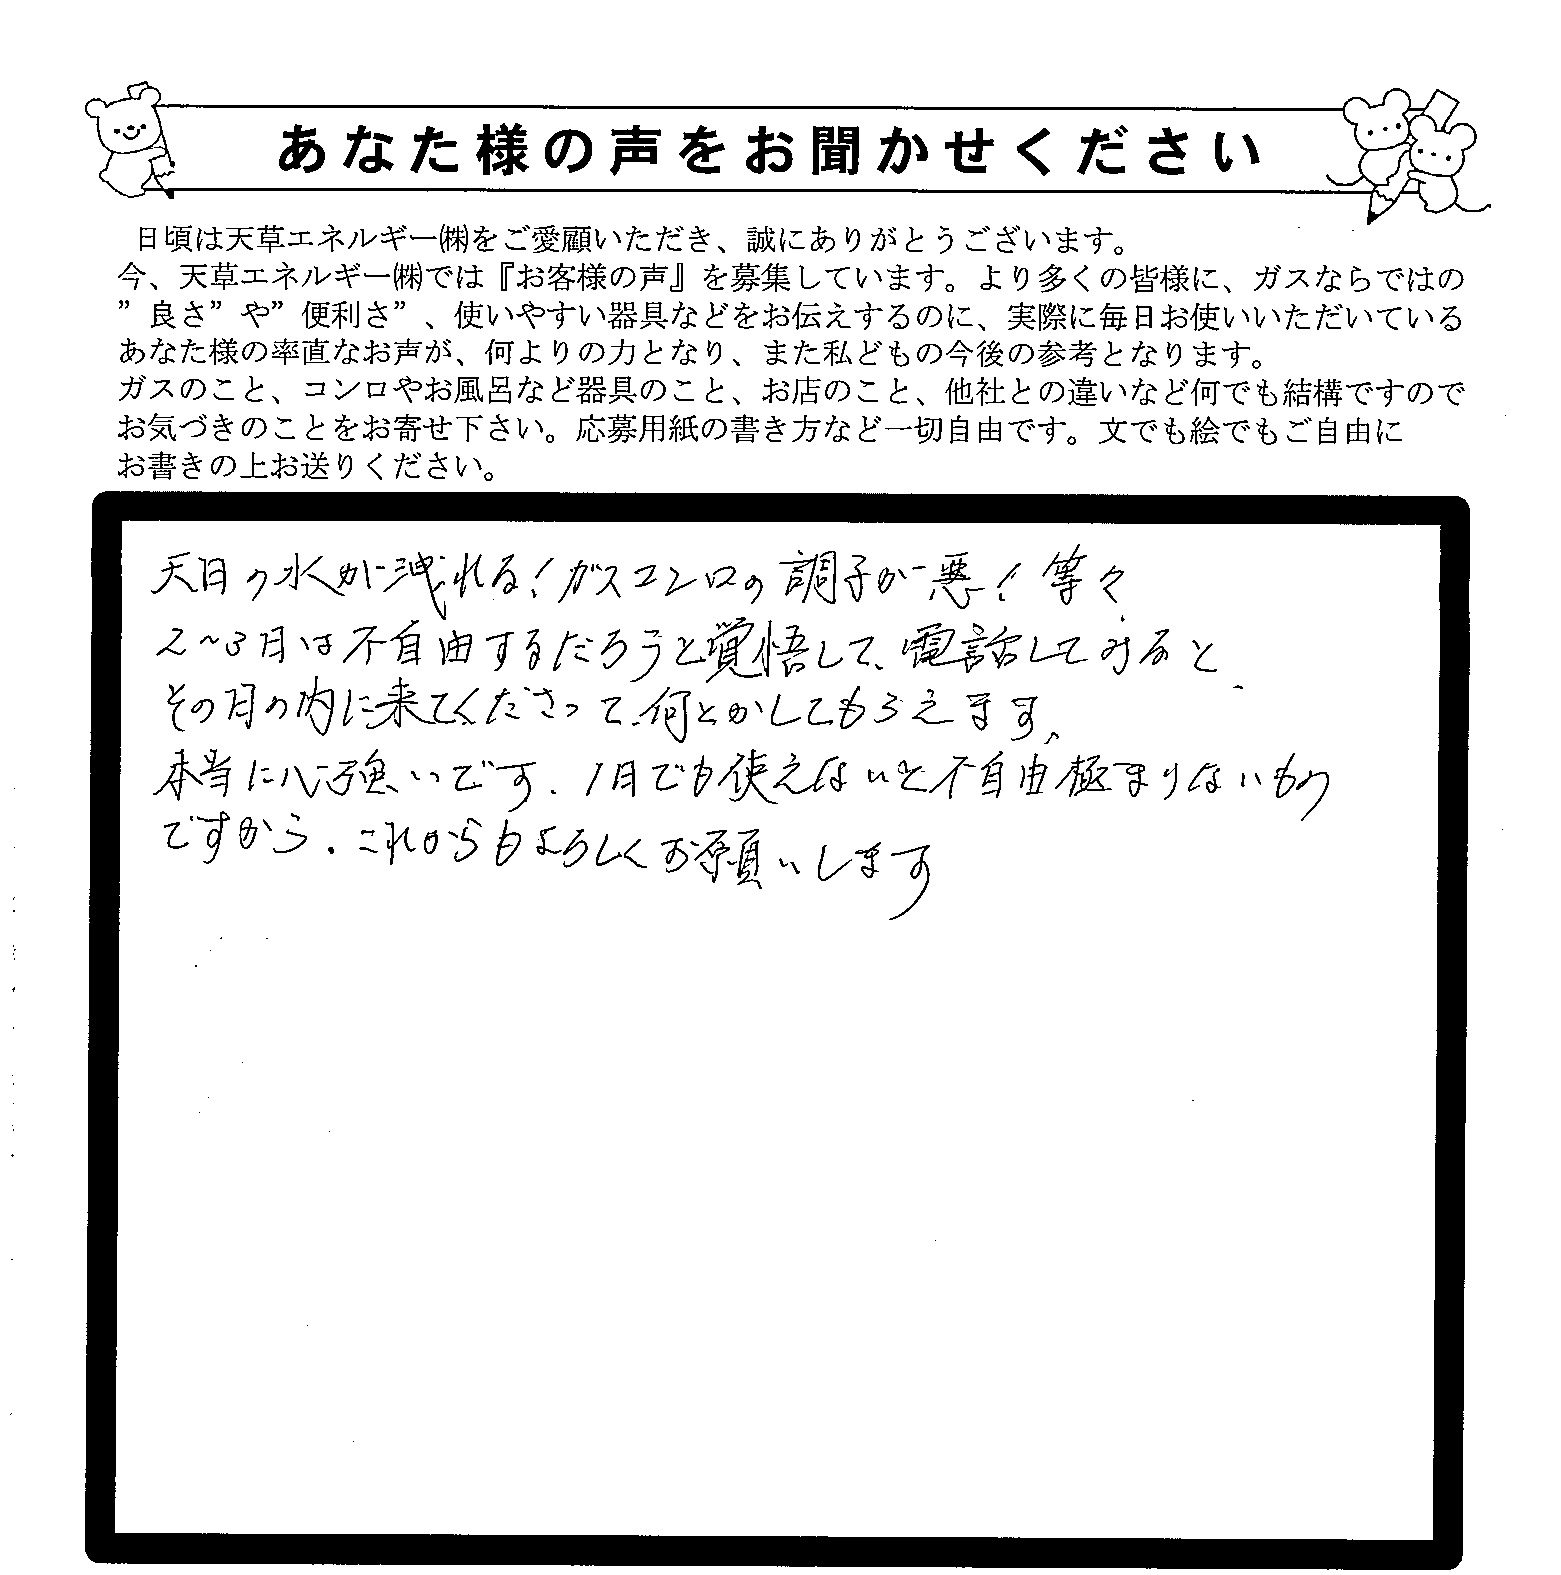 あなた様の声をお聞かせください
日頃は天草エネルギー㈱をご愛顧いただき、誠にありがとうございます。
今、天草エネルギー㈱では『お客様の声』を募集しています。より多くの皆様に、ガスならではの
”良さ”や”便利さ”、使いやすい器具などをお伝えするのに、実際に毎日お使いいただいている
あなた様の率直なお声が、何よりの力となり、また私どもの今後の参考となります。
ガスのこと、コンロやお風呂など器具のこと、お店のこと、他社との違いなど何でも結構ですので
お気づきのことをお寄せ下さい。応募用紙の書き方など一切自由です。文でも絵でもご自由に
お書きの上お送りください。
の水が洩れる！ガスコンロの調子が悪！等々
2〜3日は不自由するだろうと覚悟して、電話してみると、
その日の内に来てくださって、何とかしてもらえます、
本当に心強いです、1日でも使えないと不自由極まりないもの
ですから、これからもよろしくお願いします